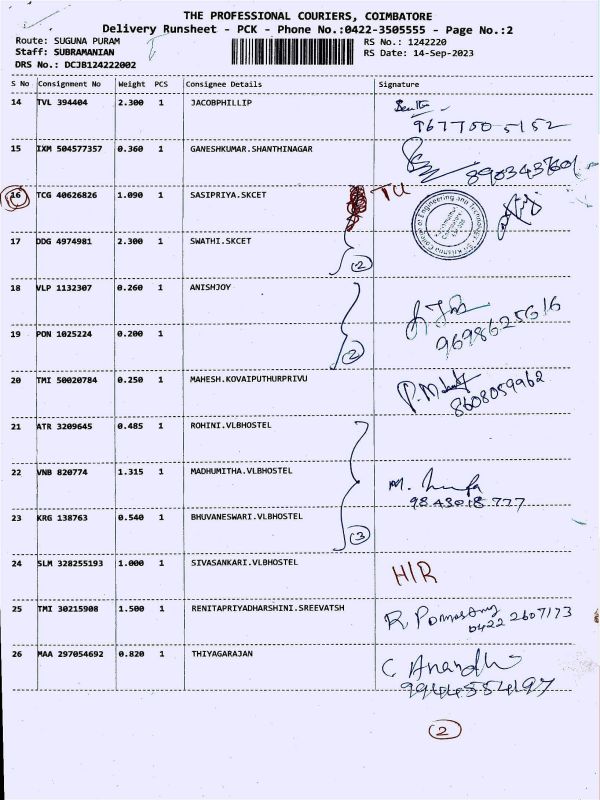 THE PROFESSIONAL COURIERS, COIMBATORE
Delivery Runsheet - PCK - Phone No.:0422-3505555 - Page No.:2
Route: SUGUNA PURAM
RS No.: 1242220
Staff: SUBRAMANIAN
RS Date: 14-Sep-2023
DRS No.: DCJB124222002
S No Consignment No Weight PCS Consignee Details Signature
14 TVL 394404 2.300 1 JACOBPHILLIP
967750 5152
15 IXM 504577357 0.360 1 GANESHKUMAR.SHANTHINAGAR
16 TCG 40626826 1.090 1 SASIPRIYA.SKCET
17 DDG 4974981 2.300 1 SWATHI.SKCET
2
18 VLP 1132307 0.260 1 ANISHJOY
9698625616
19 PON 1025224 0.200 1
2
20 TMI 50020784 0.250 1 MAHESH.KOVAIPUTHURPRIVU
8608059962
21 ATR 3209645 0.485 1 ROHINI.VLBHOSTEL
22 VNB 820774 1.315 1 MADHUMITHA.VLBHOSTEL
9843018777
23 KRG 138763 0.540 1 BHUVANESWARI.VLBHOSTEL
3
24 SLM 328255193 1.000 1 SIVASANKARI.VLBHOSTEL
H/R
25 TMI 30215908 1.500 1 RENITAPRIYADHARSHINI.SREEVATSH
0422 2607173
26 MAA 297054692 0.820 1 THIYAGARAJAN
9944554197
2